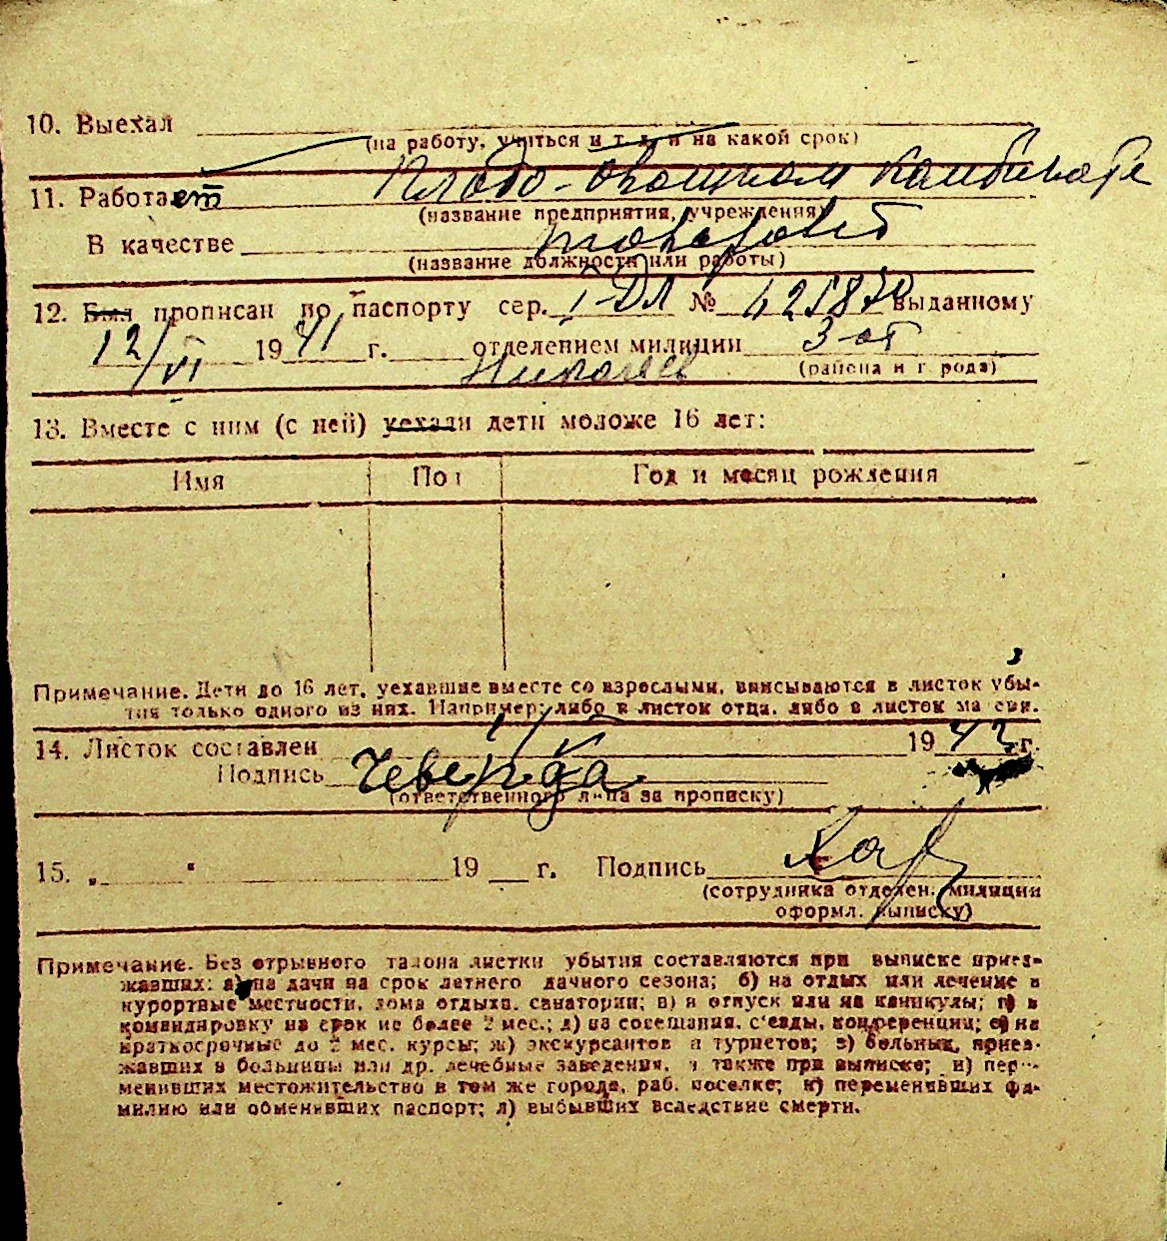 10. Выехал
(на работу, учиться и т. д. и на какой срок)
11. Работает Плодо-овощном комбинате
(название предприятия, учреждения)
В качестве
(название должности или работы)
12. Был прописан по паспорту сер. I-ДЛ № 625870 выданному
12/VI 1941 г. отделением милиции 3-от
Николаев (района и города)
13. Вместе с ним (с ней) уехали дети моложе 16 лет:
Имя Пол Год и месяц рождения
Примечание. Дети до 16 лет, уехавшие вместе со взрослыми, вписываются в листок убы-
тия только одного из них. Например: либо в листок отца, либо в листок матери.
14. Листок составлен 1942 г.
Подпись
(ответственного лица за прописку)
15. „ “ 19 г. Подпись
(сотрудника отделен. милиции
оформл. выписку)
Примечание. Без отрывного талона листки убытия составляются при выписке приез-
жавших: а) на дачи на срок летнего дачного сезона; б) на отдых или лечение в
курортные местности, дома отдыха, санатории; в) в отпуск или на каникулы; г) в
командировку на срок не более 2 мес.; д) на совещания, с'езды, конференции; е) на
краткосрочные до 2 мес. курсы; ж) экскурсантов и туристов; з) больных, приез-
жавших в больницы или др. лечебные заведения, а также при выписке; и) пере-
менивших местожительство в том же городе, раб. поселке; к) переменивших фа-
милию или обменивших паспорт; л) выбывших вследствие смерти.